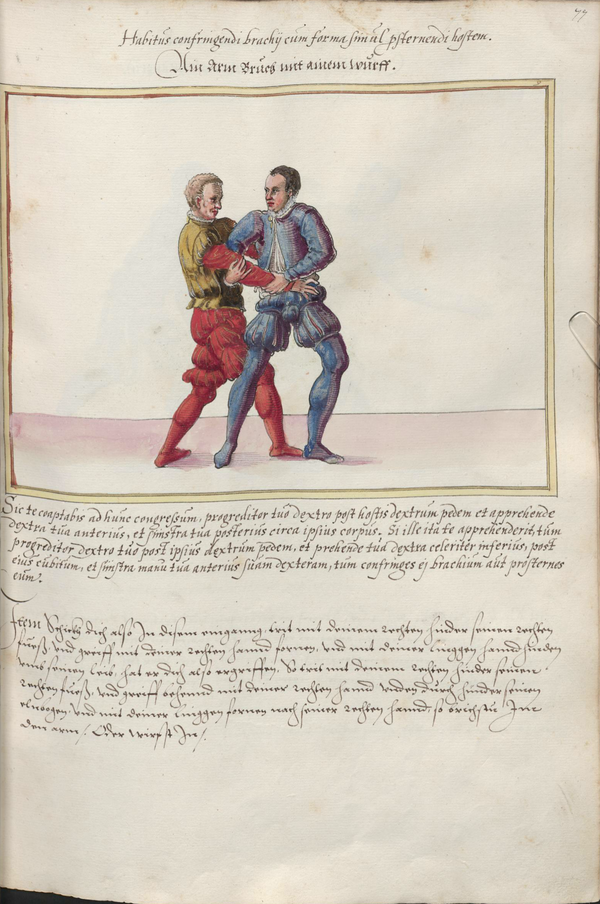 77
Habitus confringendi brachij cum forma simul psternendi hostem.
Ain Arm Bruch mit ainem wurff.
Sic te coaptabis ad hunc congressum, progreditor tuo dextro post hostis dextrum pedem et apprehende
dextra tua anterius, et sinistra tua posterius circa ipsius corpus. Si ille ita te apprehenderit, tum
progreditor dextro tuo post ipsius dextrum pedem, et prehende tua dextra celeriter inferius, post
eius cubitum, et sinistra manu tua anterius suam dexteram, tum confringes ej brachium aut prosternes
eum.
Item Schickh dich also In disem eingang, trit mit deinem rechten hinder seinen rechten
fuess, und greiff mit deiner rechten hannd fornen, und mit deiner linggen hannd hinden
umb seinen leib, hat er dich also ergriffen, So trit mit deinem rechten hinder seinen
rechten fuess, und greiff behennd mit deiner rechten hannd unden durch hinder seinen
elnbogen und mit deiner linggen fornen nach seiner rechten hannd, so brichstu Ime
den arm / Oder wirfst In /.